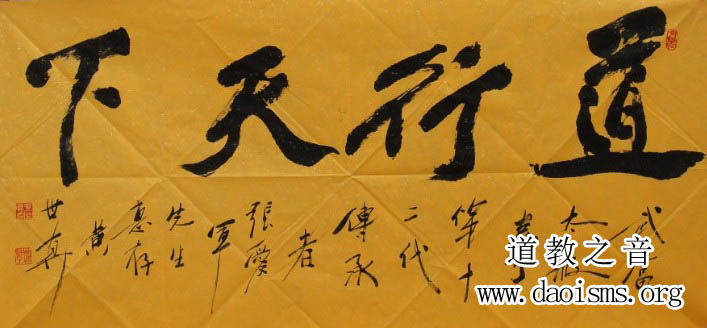 道行天下
太極
第十
二代
傳承
者
張愛
軍
先生
惠存
黄
世真
道教之音
www.daoisms.org